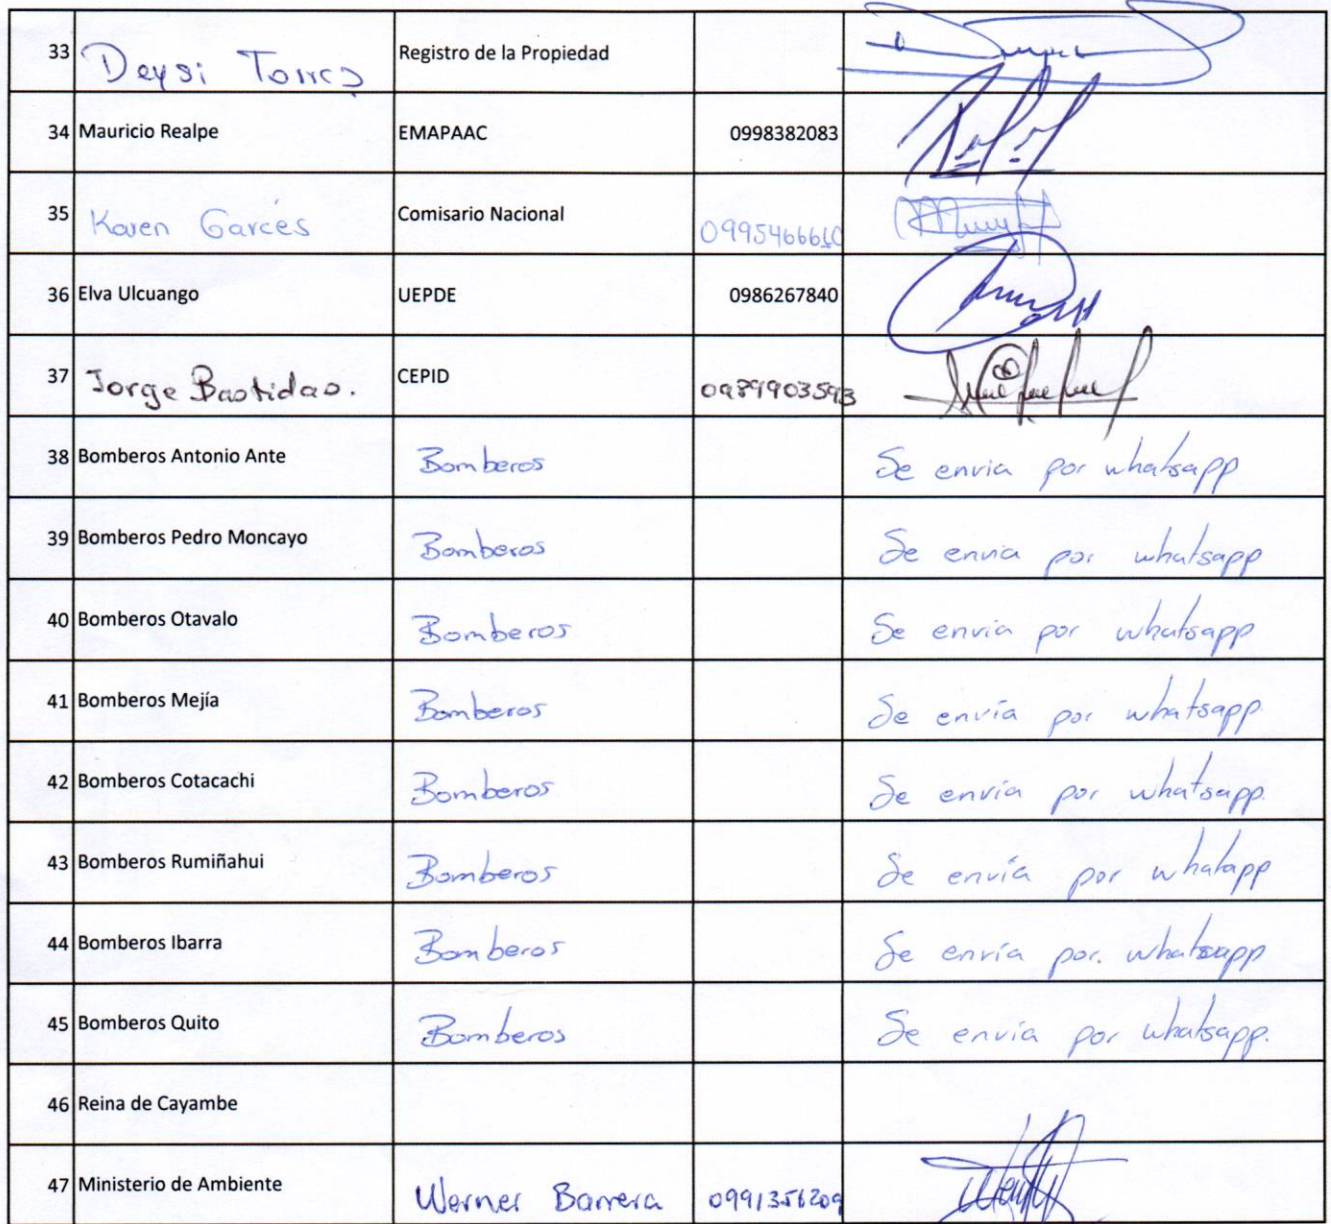 33 Deysi Torres Registro de la Propiedad
34 Mauricio Realpe EMAPAAC 0998382083
35 Karen Garcés Comisario Nacional 0995466610
36 Elva Ulcuango UEPDE 0986267840
37 Jorge Bastidas. CEPID 0989903593
38 Bomberos Antonio Ante Bomberos Se envia por whatsapp
39 Bomberos Pedro Moncayo Bomberos Se envia por whatsapp
40 Bomberos Otavalo Bomberos Se envia por whatsapp
41 Bomberos Mejía Bomberos Se envía por whatsapp
42 Bomberos Cotacachi Bomberos Se envía por whatsapp.
43 Bomberos Rumiñahui Bomberos Se envía por whatapp
44 Bomberos Ibarra Bomberos Se envía por. whatsapp
45 Bomberos Quito Bomberos Se envía por whatsapp.
46 Reina de Cayambe
47 Ministerio de Ambiente Werner Barrera 0991356209